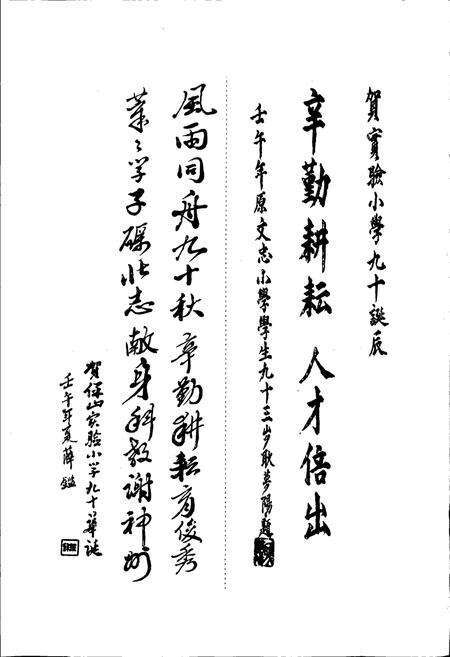 賀實驗小學九十誕辰
辛勤耕耘 人才倍出
壬午年原文忠小學學生九十三岁耿夢陽題
風雨同舟九十秋 辛勤耕耘育俊秀
莘々学子礪壮志 献身科教谢神州
贺保山实验小学九十华诞
壬午年夏薛鑑